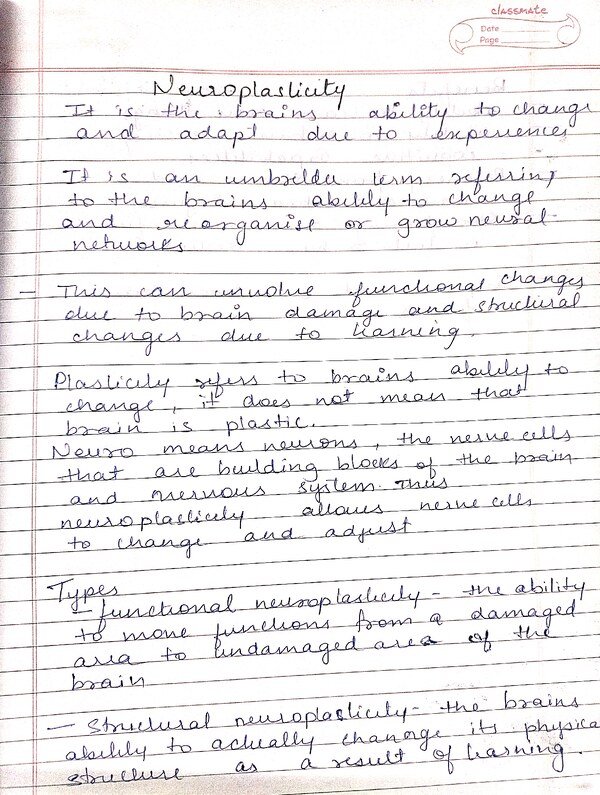 classmate
Date
Page
Neuroplasticity
It is the brains ability to change
and adapt due to experiences
It is an umbrella term referring
to the brains ability to change
and reorganise or grow neural
networks
- This can involve functional changes
due to brain damage and structural
changes due to learning.
Plasticity refers to brains ability to
change, it does not mean that
brain is plastic.
Neuro means neurons, the nerve cells
that are building blocks of the brain
and nervous system. Thus
neuroplasticity allows nerve cells
to change and adjust
Types
- functional neuroplasticity - the ability
to move functions from a damaged
area to undamaged area of the
brain
- Structural neuroplasticity - the brains
ability to actually change its physical
structure as a result of learning.